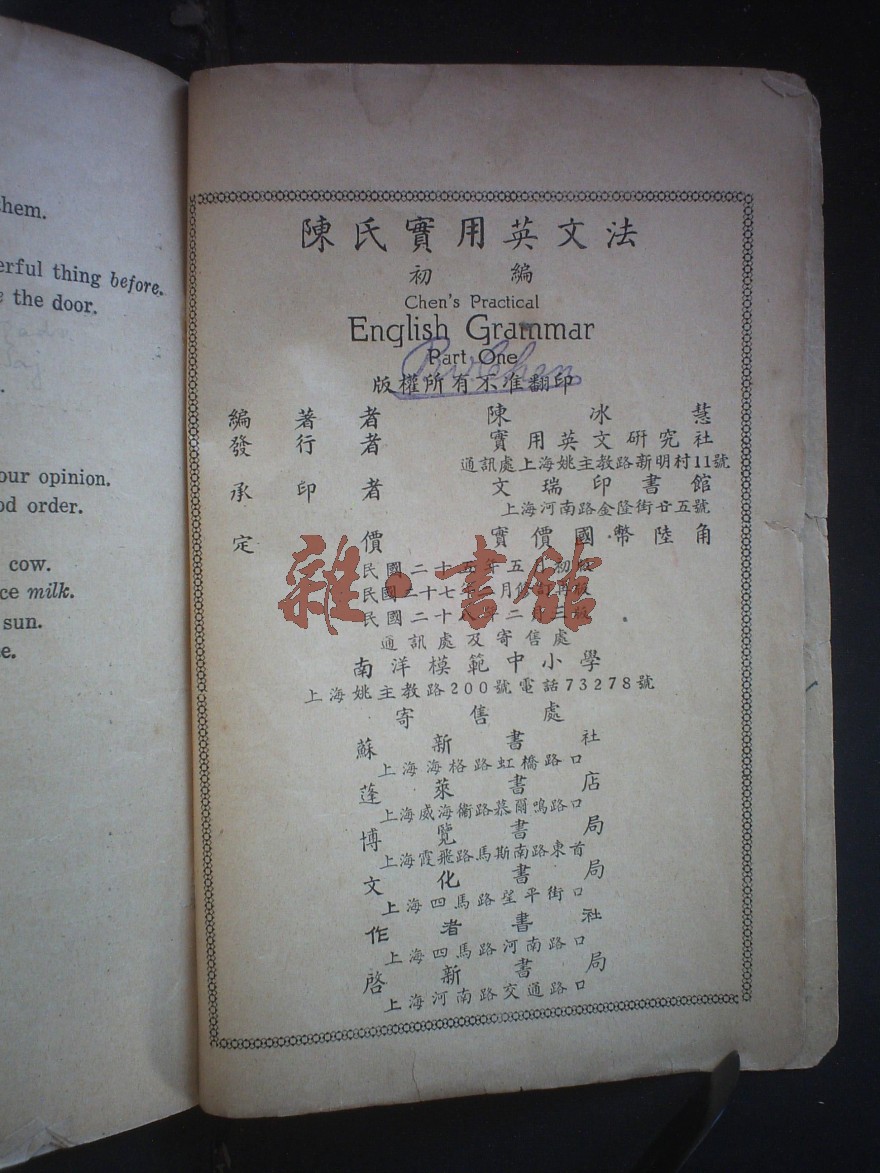 them.
erful thing before.
e the door.
our opinion.
od order.
cow.
ce milk.
sun.
e.
陳氏實用英文法
初編
Chen's Practical
English Grammar
Part One
版權所有不准翻印
編著者 陳冰慧
發行者 實用英文研究社
通訊處上海姚主教路新明村11號
承印者 文瑞印書館
上海河南路金隆街廿五號
定價 實價國幣陸角
民國二十五年五月初版
民國二十七年 月修訂再版
民國二十八年二月三版
雜·書館
通訊處及寄售處
南洋模範中小學
上海姚主教路200號電話73278號
寄售處
蘇新書社
上海海格路虹橋路口
蓬萊書店
上海威海衛路慕爾鳴路口
博覽書局
上海霞飛路馬斯南路東首
文化書局
上海四馬路望平街口
作者書社
上海四馬路河南路口
啓新書局
上海河南路交通路口